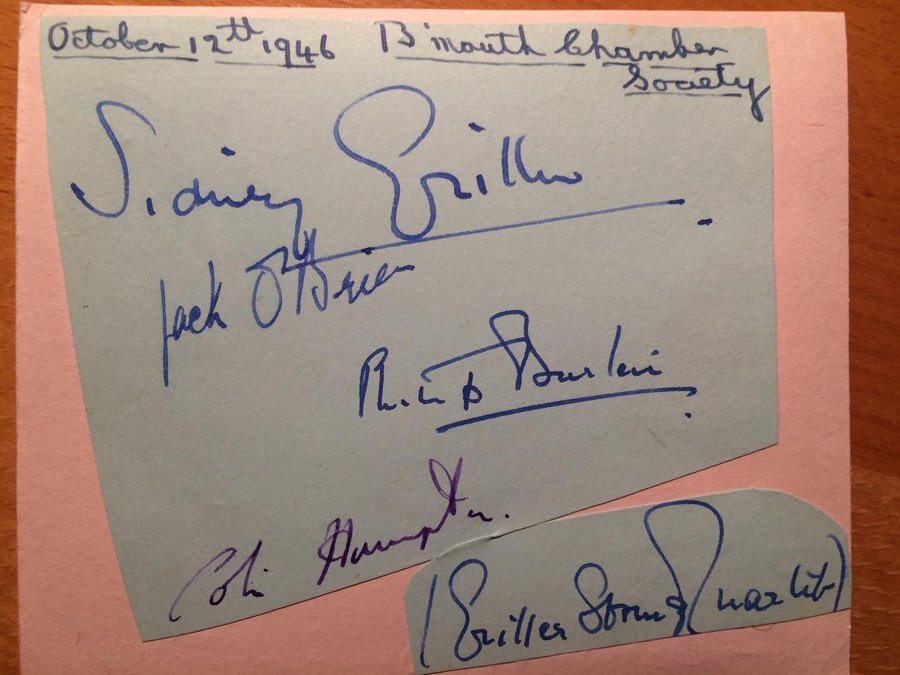 October 12th 1946 B'mouth Chamber
Society
Sidney Griller
Jack O'Brien
Philip Burton
Colin Hampton.
(Griller String Quartet)